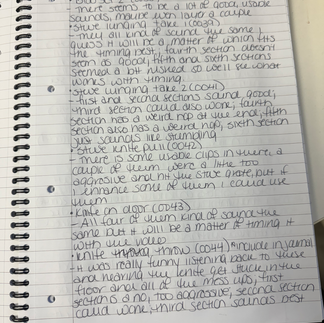 - there seems to be a lot of good, usable
sounds, maybe will layer a couple
• Stwe lunging take 1 (0039)
- they all kind of sound the same I
guess it will be a matter of which fits
the timing best, fourth section doesn't
seem as good, fifth and sixth sections
seemed a bit rushed so we'll see what
works with timing
• Stwe lunging take 2 (0041)
- first and second sections sound good,
third section could also work, fourth
section has a weird nap at the end, fifth
section also has a weird nap, sixth section
just sounds like stumbling
• Stwe knife pull (0042)
- There is some usable clips in there, a
couple of them were a little too
aggressive and hit the stove grate, but if
I enhance some of them I could use
them
• Knife on door (0043)
- All four of them kind of sound the
same but it will be a matter of timing it
with the video
• Knife throw (0044) * include in journal
it was really funny listening back to these
and hearing the knife get stuck in the
floor and all of the mess ups, first
section is a no, too aggressive, second section
could work, third section sounds best